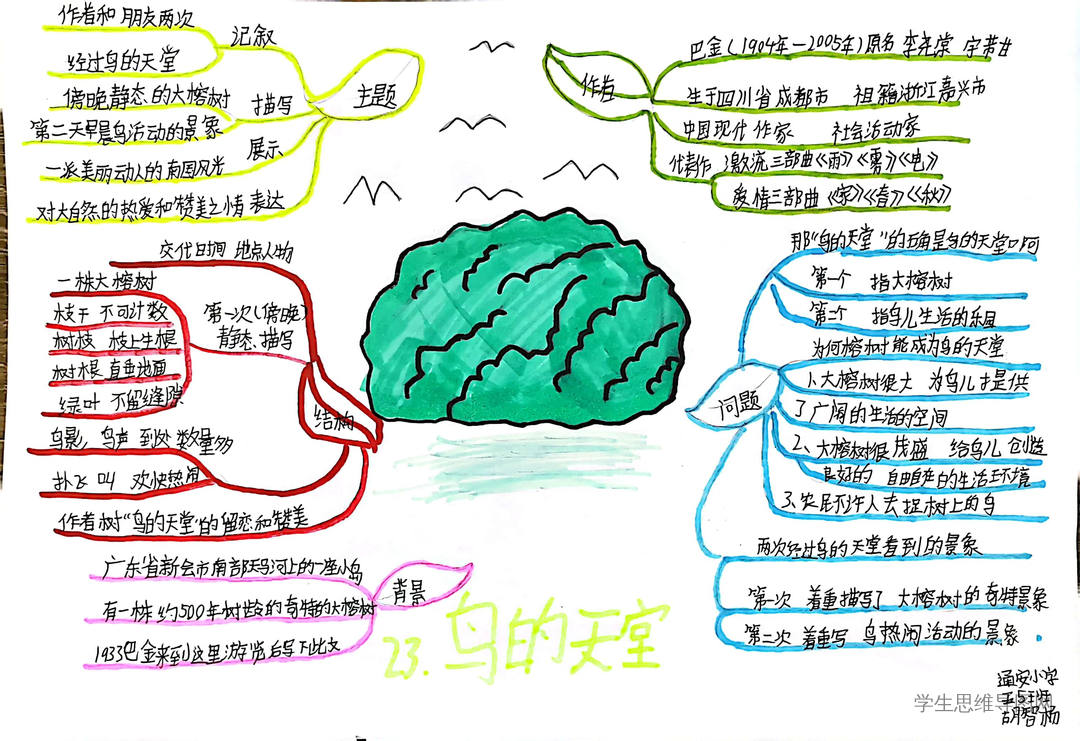 作者和朋友两次
记叙
经过鸟的天堂
主题
傍晚静态的大榕树
描写
第二天早晨鸟活动的景象
展示
一派美丽动人的南国风光
对大自然的热爱和赞美之情 表达
作者
巴金(1904年—2005年)原名 李尧棠 字芾甘
生于四川省成都市 祖籍浙江嘉兴市
中国现代作家 社会活动家
代表作 激流三部曲《雨》《雾》《电》
爱情三部曲《家》《春》《秋》
交代日间 地点人物
一株大榕树
枝干 不可计数
第一次(傍晚)
静态描写
树枝 枝上生根
树根 直垂地面
绿叶 不留缝隙
结构
鸟影,鸟声 到处 数量多
扑飞叫 欢快热闹
作者树“鸟的天堂”的留恋和赞美
那“鸟的天堂”的确是鸟的天堂啊
第一个 指大榕树
第二个 指鸟儿生活的乐园
为何榕树能成为鸟的天堂
问题
1.大榕树很大 为鸟儿提供
了广阔的生活的空间
2、大榕树很茂盛 给鸟儿创造
良好的 自由自在的生活环境
3、农民不许人去捉树上的鸟
两次经过鸟的天堂看到的景象
第一次 着重描写了 大榕树的奇特景象
第二次 着重写 鸟热闹活动的景象
广东省新会市南部天马河上的一座小岛
背景
有一株约500年树龄的奇特的大榕树
1933巴金来到这里游览后写下此文
23.鸟的天堂
通安小学
胡智杨
学生思维导图网